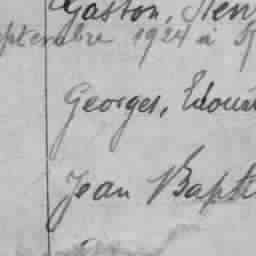 Gaston, Hen
ptembre 1924 à
Georges, Edoua
Jean Bapt